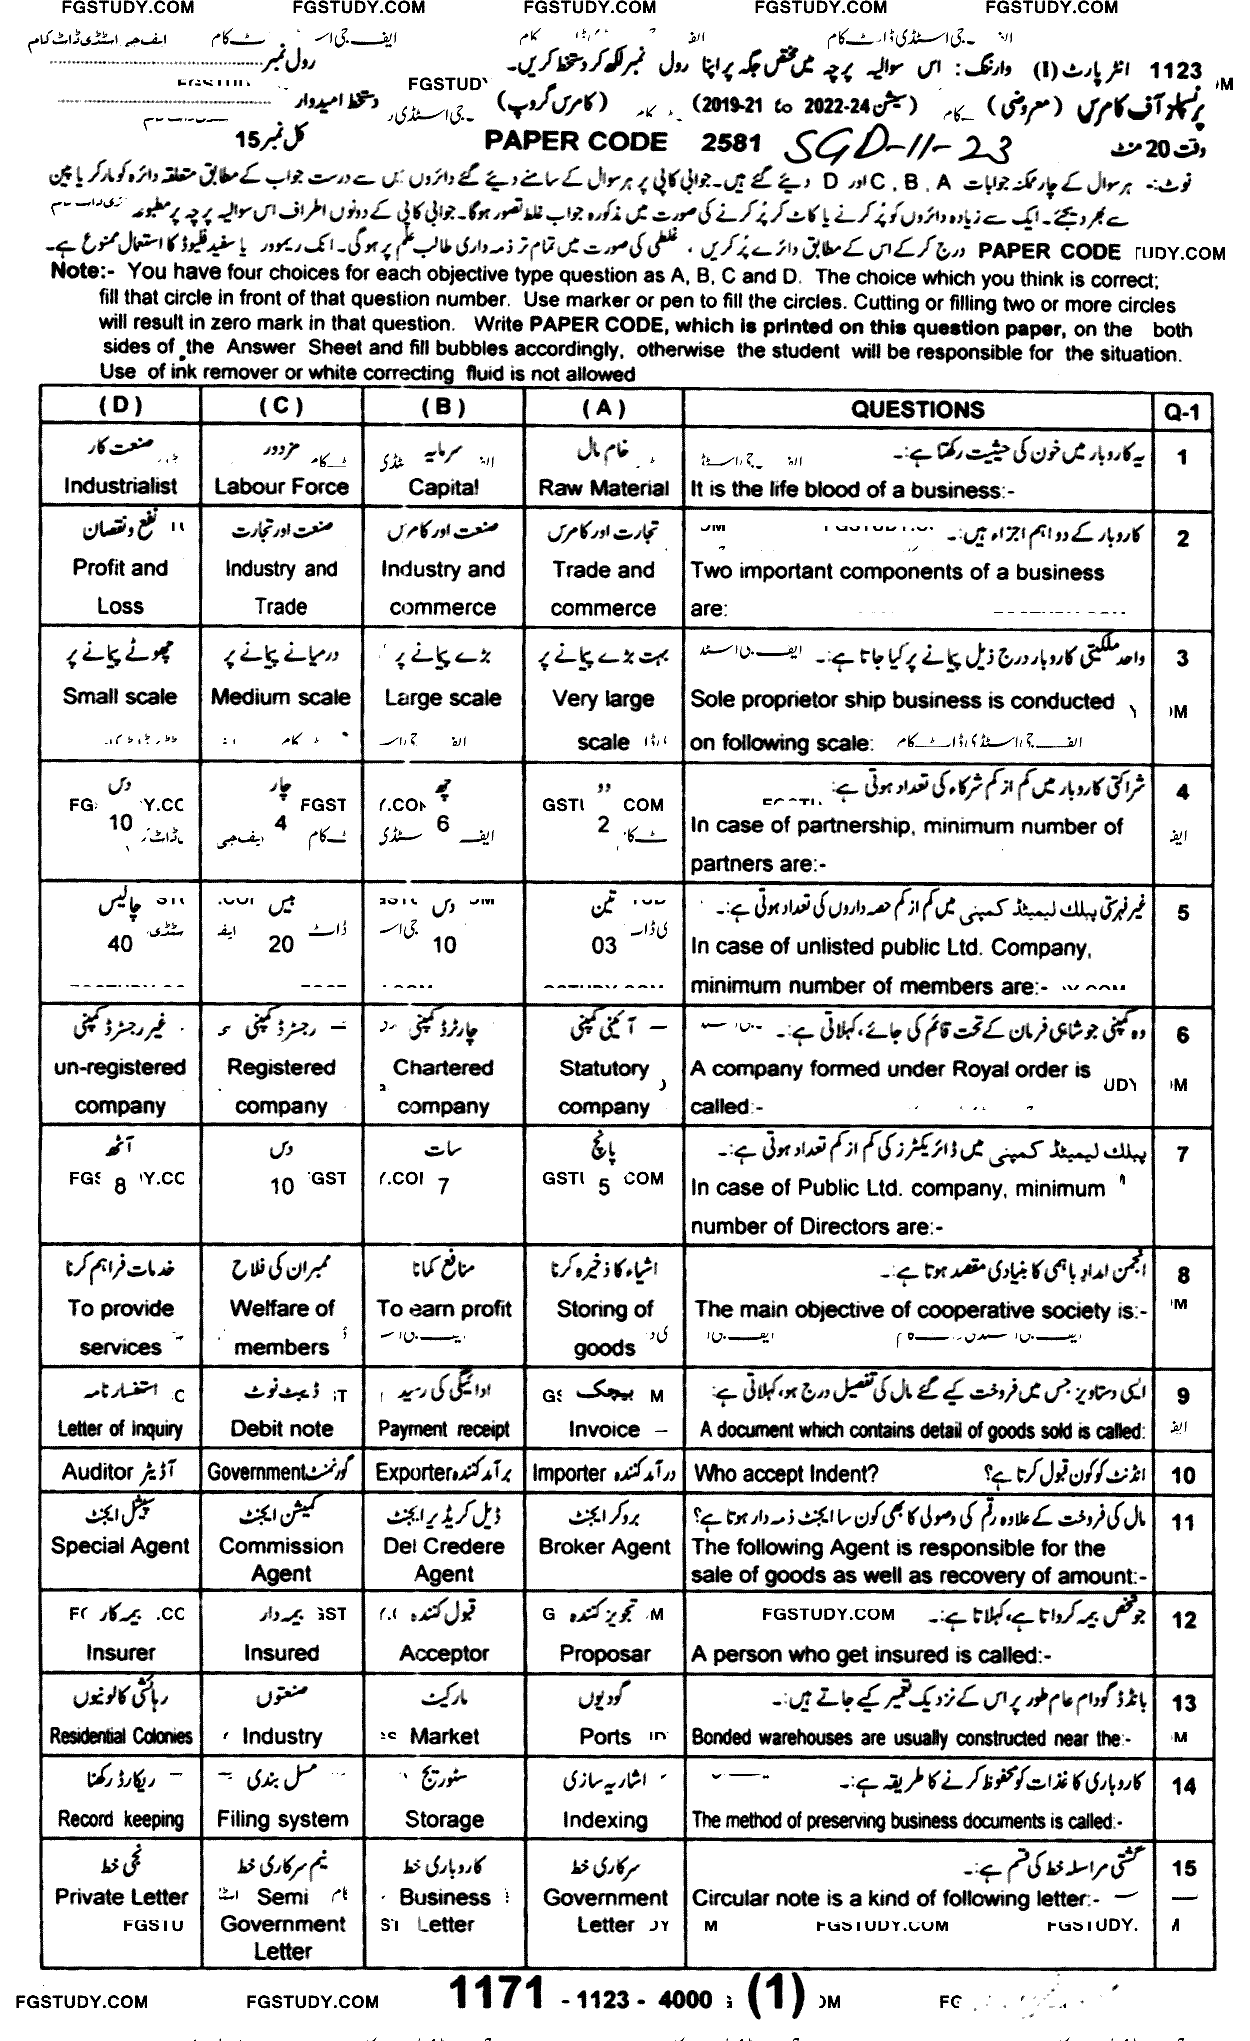 FGSTUDY.COM FGSTUDY.COM FGSTUDY.COM FGSTUDY.COM FGSTUDY.COM
ایف جی اسٹڈی ڈاٹ کام
1123 انٹر پارٹ (I) وارننگ: اس سوالیہ پرچہ میں مختص جگہ پر اپنا رول نمبر لکھ کر دستخط کریں۔ رول نمبر
پرنسپلز آف کامرس (معروضی) (سیشن 2019-21 to 2022-24) (کامرس گروپ) دستخط امیدوار
وقت 20 منٹ SGD-11-23 PAPER CODE 2581 کل نمبر 15
نوٹ:- ہر سوال کے چار ممکنہ جوابات A ، B ، C اور D دیئے گئے ہیں۔ جوابی کاپی پر ہر سوال کے سامنے دیئے گئے دائروں میں سے درست جواب کے مطابق متعلقہ دائرہ کو مارکر یا پین
سے بھر دیجئے۔ ایک سے زیادہ دائروں کو پُر کرنے یا کاٹ کر پُر کرنے کی صورت میں مذکورہ جواب غلط تصور ہوگا۔ جوابی کاپی کے دونوں اطراف اس سوالیہ پرچہ پر مطبوعہ
PAPER CODE درج کر کے اس کے مطابق دائرے پُر کریں ، غلطی کی صورت میں تمام تر ذمہ داری طالب علم پر ہوگی۔ انک ریموور یا سفید فلیوڈ کا استعمال ممنوع ہے۔
Note:- You have four choices for each objective type question as A, B, C and D. The choice which you think is correct;
fill that circle in front of that question number. Use marker or pen to fill the circles. Cutting or filling two or more circles
will result in zero mark in that question. Write PAPER CODE, which is printed on this question paper, on the both
sides of the Answer Sheet and fill bubbles accordingly, otherwise the student will be responsible for the situation.
Use of ink remover or white correcting fluid is not allowed
(D) (C) (B) (A) QUESTIONS Q-1
صنعت کار مزدور سرمایہ خام مال یہ کاروبار میں خون کی حیثیت رکھتا ہے:۔ 1
Industrialist Labour Force Capital Raw Material It is the life blood of a business:-
نفع و نقصان صنعت اور تجارت صنعت اور کامرس تجارت اور کامرس کاروبار کے دو اہم اجزاء ہیں:۔ 2
Profit and Industry and Industry and Trade and Two important components of a business
Loss Trade commerce commerce are:
چھوٹے پیمانے پر درمیانے پیمانے پر بڑے پیمانے پر بہت بڑے پیمانے پر واحد ملکیتی کاروبار درج ذیل پیمانے پر کیا جاتا ہے:۔ 3
Small scale Medium scale Large scale Very large Sole proprietor ship business is conducted
scale on following scale:
دس چار چھ دو شراکتی کاروبار میں کم از کم شرکاء کی تعداد ہوتی ہے:۔ 4
10 4 6 2 In case of partnership, minimum number of
partners are:-
چالیس بیس دس تین غیر فہرستی پبلک لیمیٹڈ کمپنی میں کم از کم حصہ داروں کی تعداد ہوتی ہے:۔ 5
40 20 10 03 In case of unlisted public Ltd. Company,
minimum number of members are:-
غیر رجسٹرڈ کمپنی رجسٹرڈ کمپنی چارٹرڈ کمپنی آئینی کمپنی وہ کمپنی جو شاہی فرمان کے تحت قائم کی جائے، کہلاتی ہے:۔ 6
un-registered Registered Chartered Statutory A company formed under Royal order is
company company company company called:-
آٹھ دس سات پانچ پبلک لیمیٹڈ کمپنی میں ڈائریکٹرز کی کم از کم تعداد ہوتی ہے:۔ 7
8 10 7 5 In case of Public Ltd. company, minimum
number of Directors are:-
خدمات فراہم کرنا ممبران کی فلاح منافع کمانا اشیاء کا ذخیرہ کرنا انجمن امداد باہمی کا بنیادی مقصد ہوتا ہے:۔ 8
To provide Welfare of To earn profit Storing of The main objective of cooperative society is:-
services members goods
استفسار نامہ ڈیبٹ نوٹ ادائیگی کی رسید بیجک ایسی دستاویز جس میں فروخت کیے گئے مال کی تفصیل درج ہو، کہلاتی ہے: 9
Letter of inquiry Debit note Payment receipt Invoice A document which contains detail of goods sold is called:
Auditor آڈیٹر Government گورنمنٹ Exporter برآمد کنندہ Importer درآمد کنندہ Who accept Indent? انڈنٹ کو کون قبول کرتا ہے؟ 10
سپیشل ایجنٹ کمیشن ایجنٹ ڈیل کریڈیر ایجنٹ بروکر ایجنٹ مال کی فروخت کے علاوہ رقم کی وصولی کا بھی کون سا ایجنٹ ذمہ دار ہوتا ہے؟ 11
Special Agent Commission Del Credere Broker Agent The following Agent is responsible for the
Agent Agent sale of goods as well as recovery of amount:-
بیمہ کار بیمہ دار قبول کنندہ تجویز کنندہ FGSTUDY.COM جو شخص بیمہ کرواتا ہے، کہلاتا ہے:۔ 12
Insurer Insured Acceptor Proposar A person who get insured is called:-
رہائشی کالونیوں صنعتوں مارکیٹ گودیوں بانڈڈ گودام عام طور پر اس کے نزدیک تعمیر کیے جاتے ہیں:۔ 13
Residential Colonies Industry Market Ports Bonded warehouses are usually constructed near the:-
ریکارڈ رکھنا مسل بندی سٹوریج اشاریہ سازی کاروباری کاغذات کو محفوظ کرنے کا طریقہ ہے:۔ 14
Record keeping Filing system Storage Indexing The method of preserving business documents is called:-
نجی خط نیم سرکاری خط کاروباری خط سرکاری خط گشتی مراسلہ خط کی قسم ہے:۔ 15
Private Letter Semi Business Government Circular note is a kind of following letter:-
Government Letter Letter
Letter
1171 - 1123 - 4000 (1)
FGSTUDY.COM FGSTUDY.COM